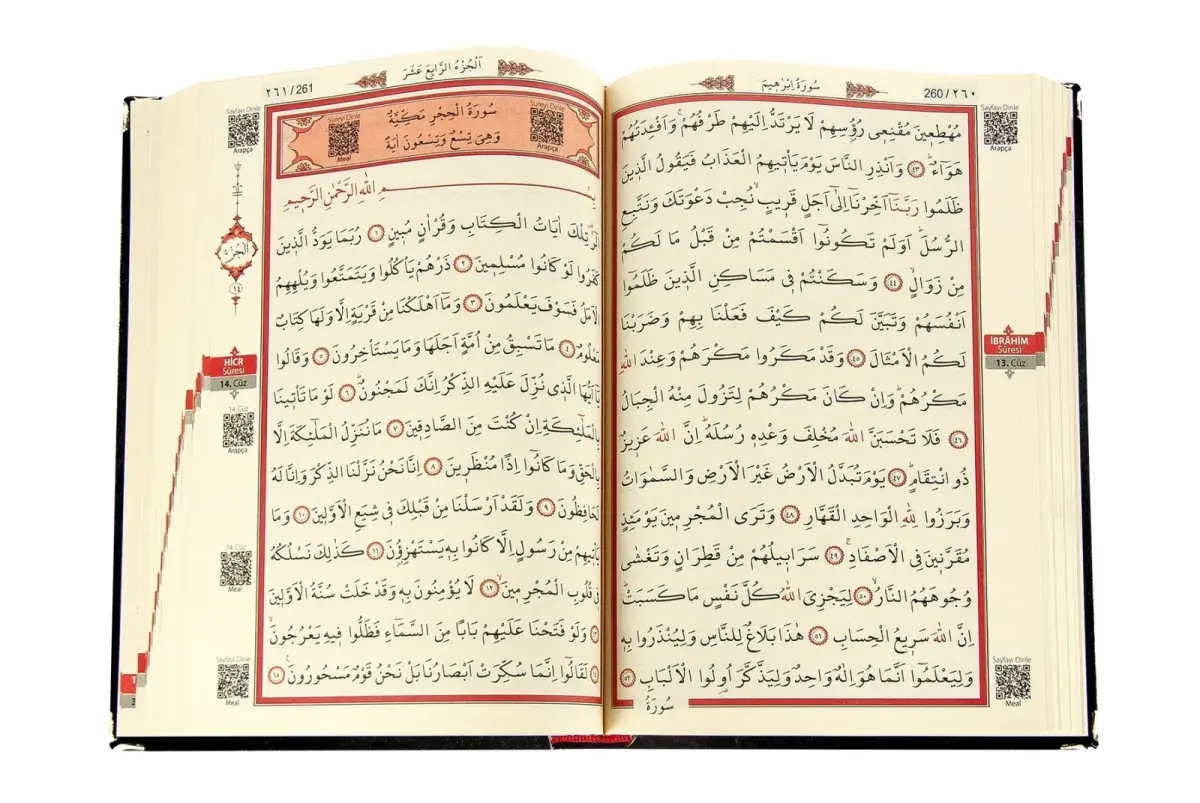 سُورَةُ اِبْرٰه۪يمَ
260 / ٢٦٠
Sayfayı Dinle
Arapça
مُهْطِع۪ينَ مُقْنِع۪ي رُؤُسِهِمْ لَا يَرْتَدُّ اِلَيْهِمْ طَرْفُهُمْۚ وَاَفْـِٔدَتُهُمْ
هَوَٓاءٌۜ ﴿٤٣﴾ وَاَنْذِرِ النَّاسَ يَوْمَ يَأْت۪يهِمُ الْعَذَابُ فَيَقُولُ الَّذ۪ينَ
ظَلَمُوا رَبَّنَٓا اَخِّرْنَٓا اِلٰٓى اَجَلٍ قَر۪يبٍۙ نُجِبْ دَعْوَتَكَ وَنَتَّبِعِ
الرُّسُلَۜ اَوَلَمْ تَكُونُٓوا اَقْسَمْتُمْ مِنْ قَبْلُ مَا لَكُمْ
مِنْ زَوَالٍۙ ﴿٤٤﴾ وَسَكَنْتُمْ ف۪ي مَسَاكِنِ الَّذ۪ينَ ظَلَمُٓوا
اَنْفُسَهُمْ وَتَبَيَّنَ لَكُمْ كَيْفَ فَعَلْنَا بِهِمْ وَضَرَبْنَا
لَكُمُ الْاَمْثَالَ ﴿٤٥﴾ وَقَدْ مَكَرُوا مَكْرَهُمْ وَعِنْدَ اللّٰهِ
مَكْرُهُمْۜ وَاِنْ كَانَ مَكْرُهُمْ لِتَزُولَ مِنْهُ الْجِبَالُ
﴿٤٦﴾ فَلَا تَحْسَبَنَّ اللّٰهَ مُخْلِفَ وَعْدِه۪ رُسُلَهُۜ اِنَّ اللّٰهَ عَز۪يزٌ
ذُو انْتِقَامٍۜ ﴿٤٧﴾ يَوْمَ تُبَدَّلُ الْاَرْضُ غَيْرَ الْاَرْضِ وَالسَّمٰوَاتُ
وَبَرَزُوا لِلّٰهِ الْوَاحِدِ الْقَهَّارِ ﴿٤٨﴾ وَتَرَى الْمُجْرِم۪ينَ يَوْمَئِذٍ
مُقَرَّن۪ينَ فِي الْاَصْفَادِۚ ﴿٤٩﴾ سَرَاب۪يلُهُمْ مِنْ قَطِرَانٍ وَتَغْشٰى
وُجُوهَهُمُ النَّارُۙ ﴿٥٠﴾ لِيَجْزِيَ اللّٰهُ كُلَّ نَفْسٍ مَا كَسَبَتْۜ
اِنَّ اللّٰهَ سَر۪يعُ الْحِسَابِ ﴿٥١﴾ هٰذَا بَلَاغٌ لِلنَّاسِ وَلِيُنْذَرُوا بِه۪
وَلِيَعْلَمُٓوا اَنَّمَا هُوَ اِلٰهٌ وَاحِدٌ وَلِيَذَّكَّرَ اُو۬لُوا الْاَلْبَابِ ﴿٥٢﴾
سُورَةُ
İBRÂHİM
Sûresi
13. Cüz
Sayfayı Dinle
Meal
اَلْجُزْءُ الرَّابِعَ عَشَرَ
٢٦١ / 261
Sayfayı Dinle
Arapça
سُورَةُ الْحِجْرِ مَكِّيَّةٌ
وَهِيَ تِسْعٌ وَتِسْعُونَ اٰيَةً
Sureyi Dinle
Arapça
Sureyi Dinle
Meal
بِسْمِ اللّٰهِ الرَّحْمٰنِ الرَّح۪يمِ
الٓرٰ تِلْكَ اٰيَاتُ الْكِتَابِ وَقُرْاٰنٍ مُب۪ينٍ ﴿١﴾ رُبَمَا يَوَدُّ الَّذ۪ينَ
كَفَرُوا لَوْ كَانُوا مُسْلِم۪ينَ ﴿٢﴾ ذَرْهُمْ يَأْكُلُوا وَيَتَمَتَّعُوا وَيُلْهِهِمُ
الْاَمَلُ فَسَوْفَ يَعْلَمُونَ ﴿٣﴾ وَمَٓا اَهْلَكْنَا مِنْ قَرْيَةٍ اِلَّا وَلَهَا كِتَابٌ
مَعْلُومٌ ﴿٤﴾ مَا تَسْبِقُ مِنْ اُمَّةٍ اَجَلَهَا وَمَا يَسْتَأْخِرُونَ ﴿٥﴾ وَقَالُوا
يَٓا اَيُّهَا الَّذ۪ي نُزِّلَ عَلَيْهِ الذِّكْرُ اِنَّكَ لَمَجْنُونٌۜ ﴿٦﴾ لَوْ مَا تَأْت۪ينَا
بِالْمَلٰٓئِكَةِ اِنْ كُنْتَ مِنَ الصَّادِق۪ينَ ﴿٧﴾ مَا نُنَزِّلُ الْمَلٰٓئِكَةَ اِلَّا
بِالْحَقِّ وَمَا كَانُٓوا اِذًا مُنْظَر۪ينَ ﴿٨﴾ اِنَّا نَحْنُ نَزَّلْنَا الذِّكْرَ وَاِنَّا لَهُ
لَحَافِظُونَ ﴿٩﴾ وَلَقَدْ اَرْسَلْنَا مِنْ قَبْلِكَ ف۪ي شِيَعِ الْاَوَّل۪ينَ ﴿١٠﴾ وَمَا
يَأْت۪يهِمْ مِنْ رَسُولٍ اِلَّا كَانُوا بِه۪ يَسْتَهْزِؤُ۫نَ ﴿١١﴾ كَذٰلِكَ نَسْلُكُهُ
ف۪ي قُلُوبِ الْمُجْرِم۪ينَۙ ﴿١٢﴾ لَا يُؤْمِنُونَ بِه۪ وَقَدْ خَلَتْ سُنَّةُ الْاَوَّل۪ينَ
﴿١٣﴾ وَلَوْ فَتَحْنَا عَلَيْهِمْ بَابًا مِنَ السَّمَٓاءِ فَظَلُّوا ف۪يهِ يَعْرُجُونَۙ
﴿١٤﴾ لَقَالُٓوا اِنَّمَا سُكِّرَتْ اَبْصَارُنَا بَلْ نَحْنُ قَوْمٌ مَسْحُورُونَ۟ ﴿١٥﴾
اَلْجُزْءُ
١٤
HİCR
Sûresi
14. Cüz
14. Cüz
Arapça
14. Cüz
Meal
Sayfayı Dinle
Meal